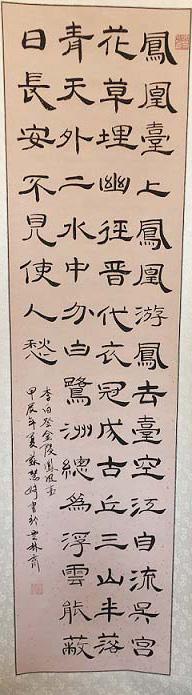 鳳凰臺上鳳凰游鳳去臺空江自流吳宮
花草埋幽徑晉代衣冠成古丘三山半落
青天外二水中分白鷺洲總為浮雲能蔽
日長安不見使人愁
李白登金陵鳳凰臺
甲辰年夏蘇慧書於雲林齋